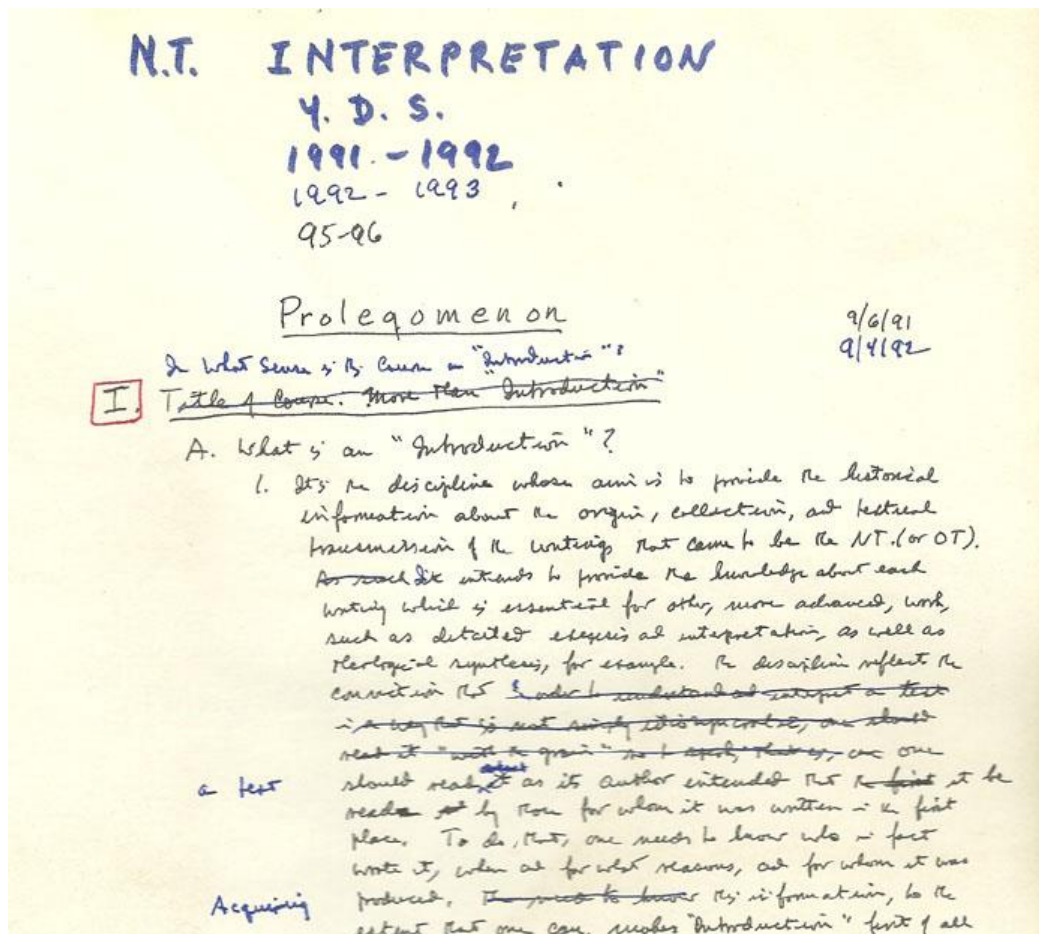 N.T. INTERPRETATION
Y. D. S.
1991 - 1992
1992 - 1993
95-96
Prolegomenon
9/6/91
9/4/92
In What Sense is This Course an "Introduction"?
I. Title of Course: More Than "Introduction"
A. What is an "Introduction"?
1. It's the discipline whose aim is to provide the historical
information about the origin, collection, and textual
transmission of the writings that came to be the NT. (or OT).
As such It intends to provide the knowledge about each
writing which is essential for other, more advanced, work,
such as detailed exegesis and interpretation, as well as
theological synthesis, for example. The discipline reflects the
conviction that in order to understand and interpret a text
in a way that is not simply idiosyncratic, one should
read it "with the grain" so to speak, that is, one
a text should read it as its author intended that the first it be
read by those for whom it was written in the first
place. To do that, one needs to know who in fact
wrote it, when and for what reasons, and for whom it was
Acquiring produced. The need to know this information, to the
extent that one can, makes "Introduction" first of all